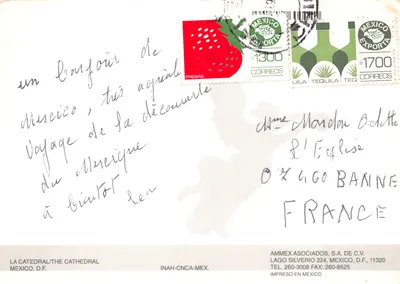 un bonjour de
Mexico, très agréable
Voyage de la découverte
du Mexique
à bientôt
FRESAS
1300
CORREOS
MEXICO
EXPORTA
TEQUILA TEQ
1700
CORREOS
Mme Mondon Odette
L'Eglise
07460 BANNE
FRANCE
LA CATEDRAL/THE CATHEDRAL
MEXICO, D.F.
INAH-CNCA-MEX.
AMMEX ASOCIADOS, S.A. DE C.V.
LAGO SILVERIO 224, MEXICO, D.F., 11320
TEL. 260-3008 FAX: 260-8525
IMPRESO EN MEXICO